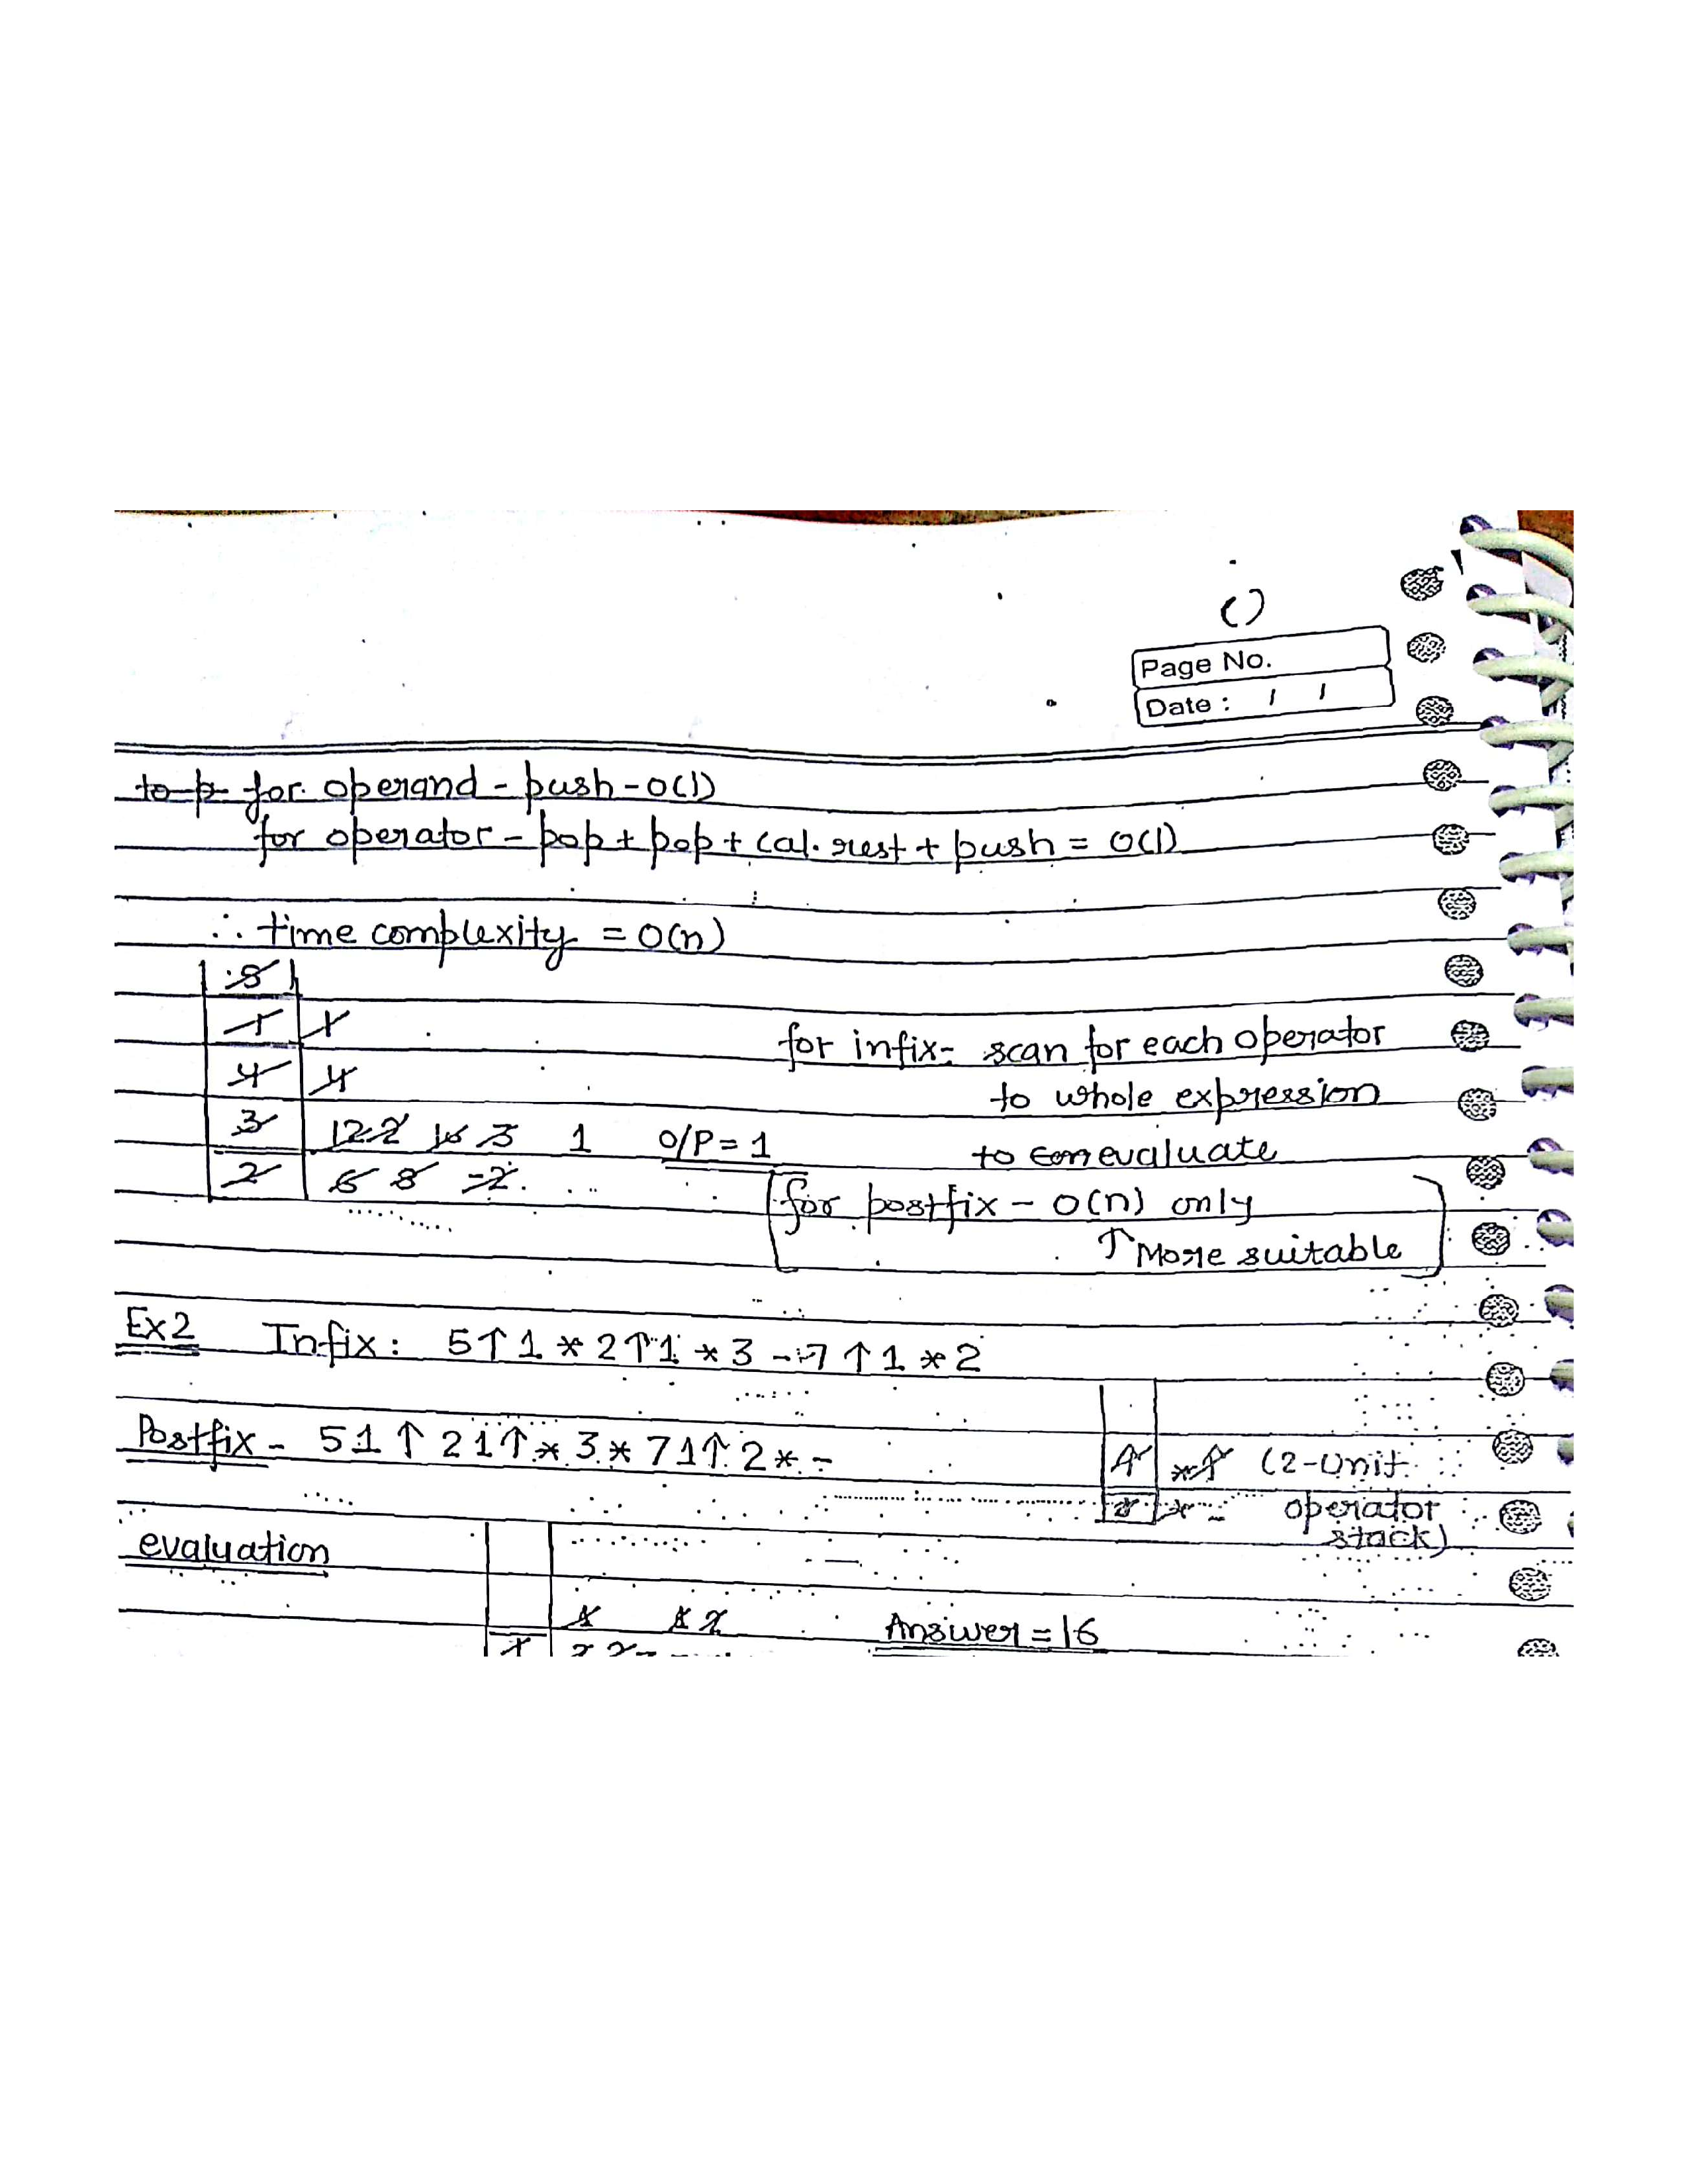 ()
Page No.
Date : / /
for operand - push - O(1)
for operator - pop + pop + cal. rest + push = O(1)
∴ time complexity = O(n)
8
1 1
4 4
3 12 2 16 3 1 O/P = 1
2 6 8 -2
for infix - scan for each operator
to whole expression
to evaluate
for postfix - O(n) only
↑ More suitable
Ex2 Infix : 5↑1 * 2↑1 * 3 - 7↑1 * 2
Postfix - 51↑21↑*3*71↑2*-
↑ *↑ (2-Unit
* - operator
stack)
evaluation
Answer = 16